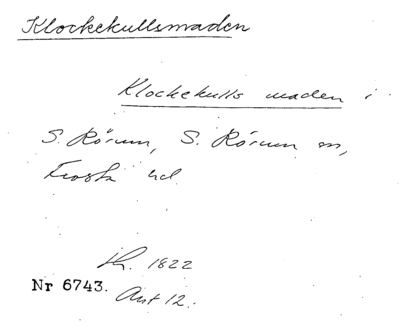 Klockekullsmaden
Klockekulls maden i
S. Rörum, S. Rörum sn,
Frosta hd
Lh. 1822
Nr 6743.
Akt 12.